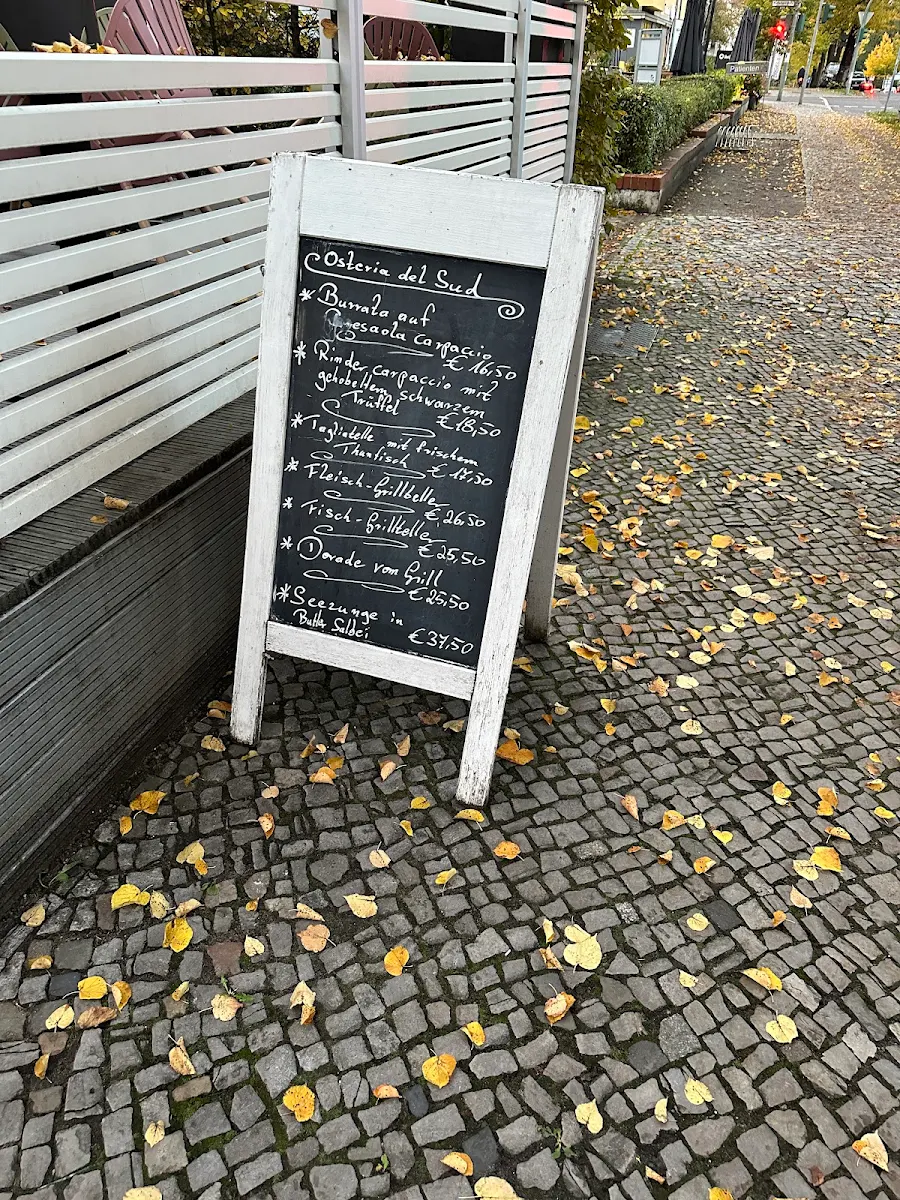 Osteria del Sud
* Burrata auf
Bresaola Carpaccio
€ 16,50
* Rinder carpaccio mit
gehobeltem schwarzem
Trüffel
€ 18,50
* Tagliatelle mit frischem
Thunfisch € 17,50
* Fleisch-Grillteller
€ 26,50
* Fisch-Grillteller
€ 25,50
* Dorade vom Grill
€ 25,50
* Seezunge in
Butter Salbei € 37,50
Patienten